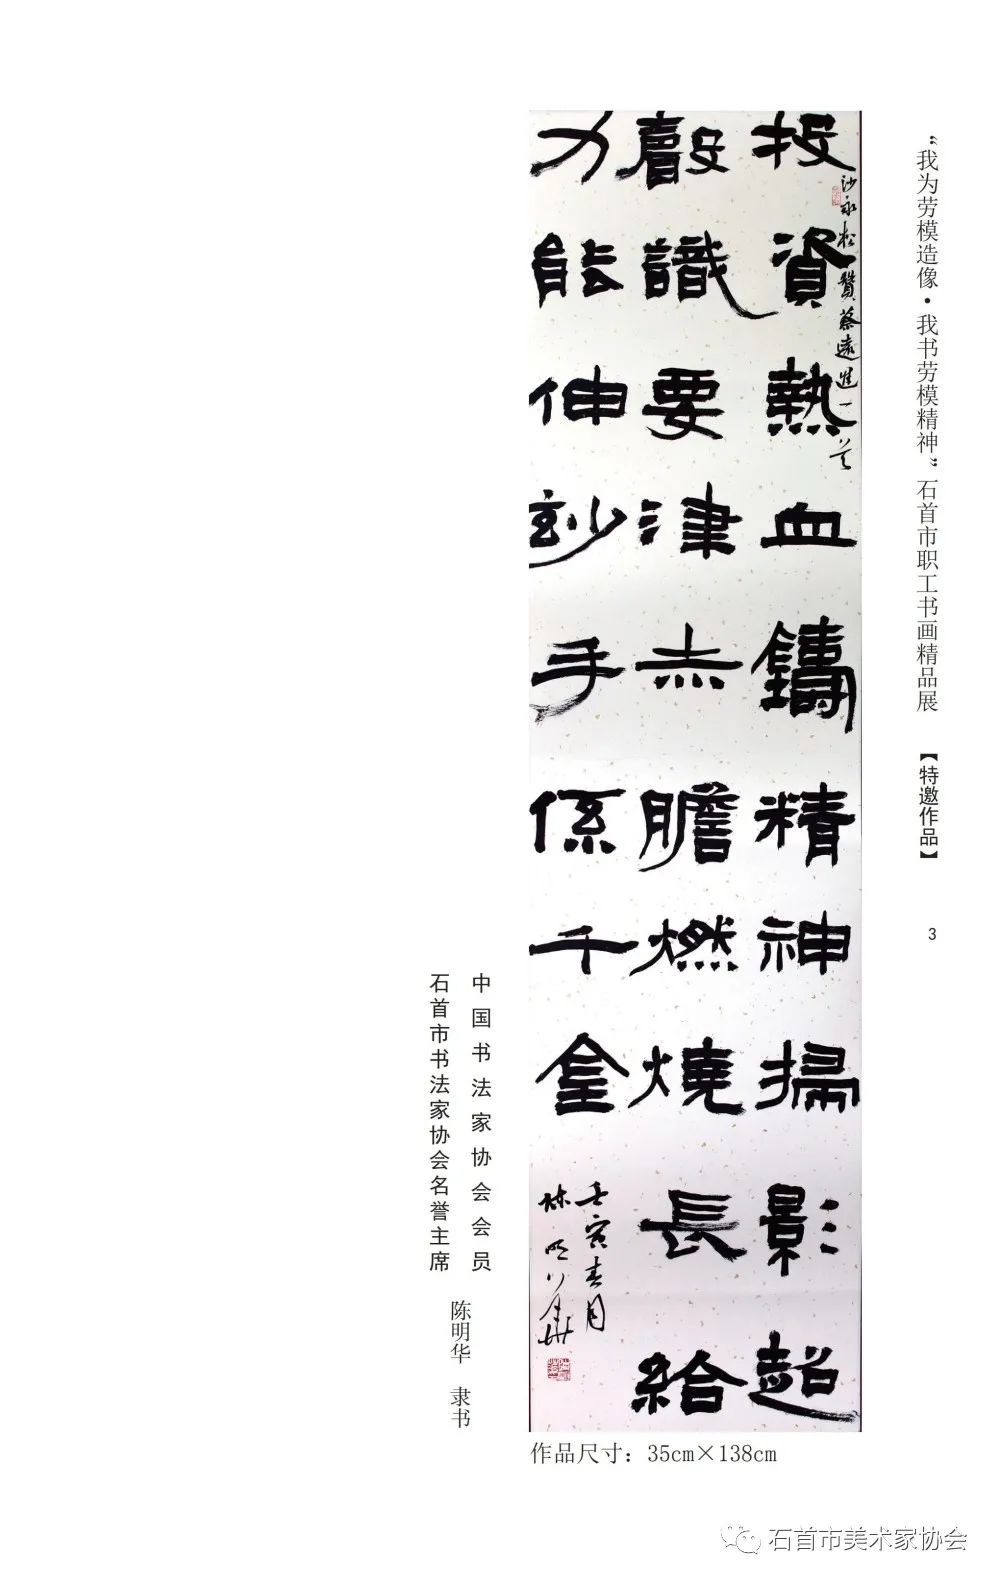 “我为劳模造像·我书劳模精神”石首市职工书画精品展
【特邀作品】
3
投資熱血鑄精神掃影超
沙永松 贊蔡遠進一首
聲識要津赤膽燃燒長給
力能伸妙手係千金
壬寅春月
陈明华
中国书法家协会会员
石首市书法家协会名誉主席
陈明华 隶书
作品尺寸：35cm×138cm
石首市美术家协会